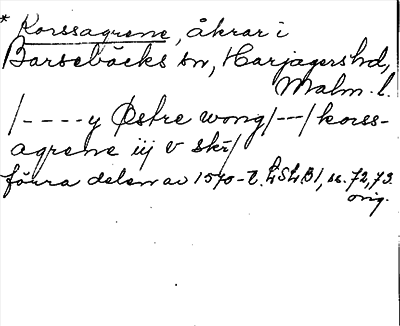 * Korssagrene, åkrar i
Barsebäcks sn, Harjagers hd,
Malm. l.
/----y Østre wong/---/korss-
agrene iij v skr/
förra delen av 1570-t. LSLB1, ss. 72,73.
orig.